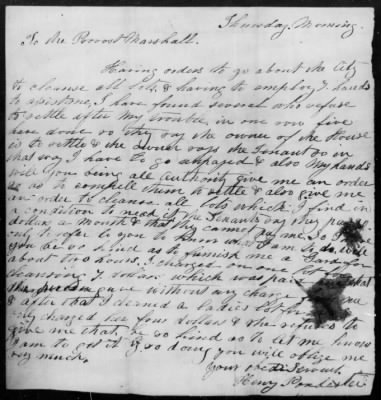 Thursday Morning.
To the Provost Marshall.
Having orders to go about the City
to cleanse all lots, & having to employ hands
to assist me, I have found several who refuse
to settle after my trouble, in one row five
have done so they say the owner of the House
is to settle & the owner says the Tenant so in
that way I have to go unpaid & also my hands
will you being all authority give me an order
so as to compell them to settle & also give me
an order to cleanse all lots which I find in
a condition to need it the Tenants say they pay
dollars a month & that they cannot pay me. So
only to refer to you to know what I am to do will
you be so kind as to furnish me a Guard for
about two hours. I charge on one lot for
cleansing 7 dollars which was paid
the gave without any charge
& after that I cleaned a ladies lot for
only charged her four dollars & she refuses to
give me that, be so kind as to let me know
I am to get it & so doing you will oblige me
very much.
Your obed Servant.
Henry